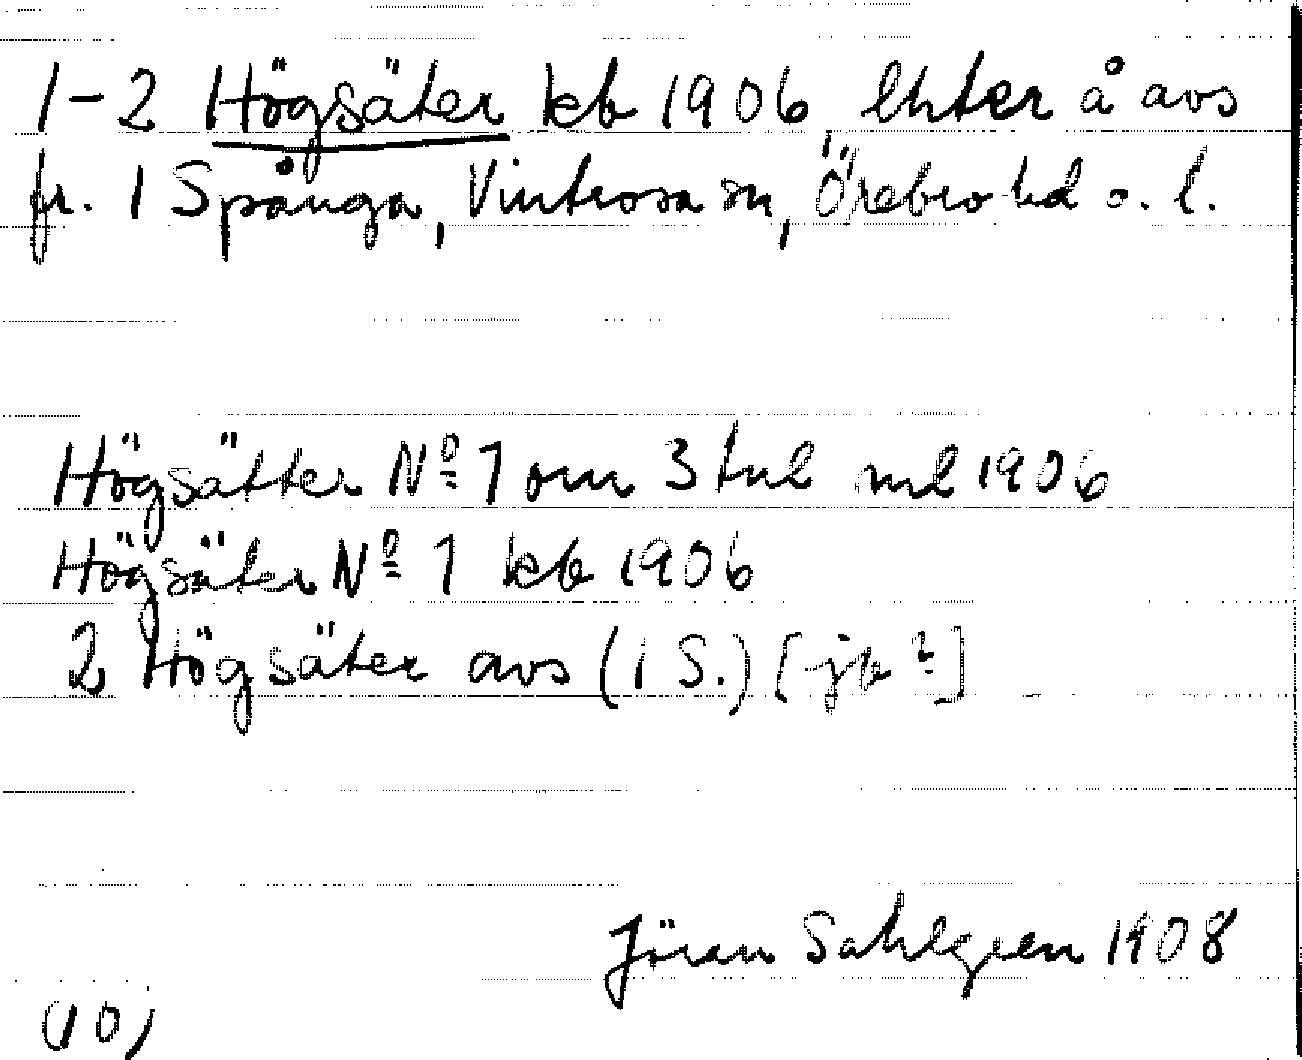 1-2 Högsäter kb 1906, lhter å avs
fr. 1 Spånga, Vintrosa sn, Örebro hd o. l.
Högsätter Nº 1 om 3 tul ml 1906
Högsäter Nº 1 kb 1906
2 Högsäter avs (1 S.) [jb?]
Jöran Sahlgren 1908
(10)